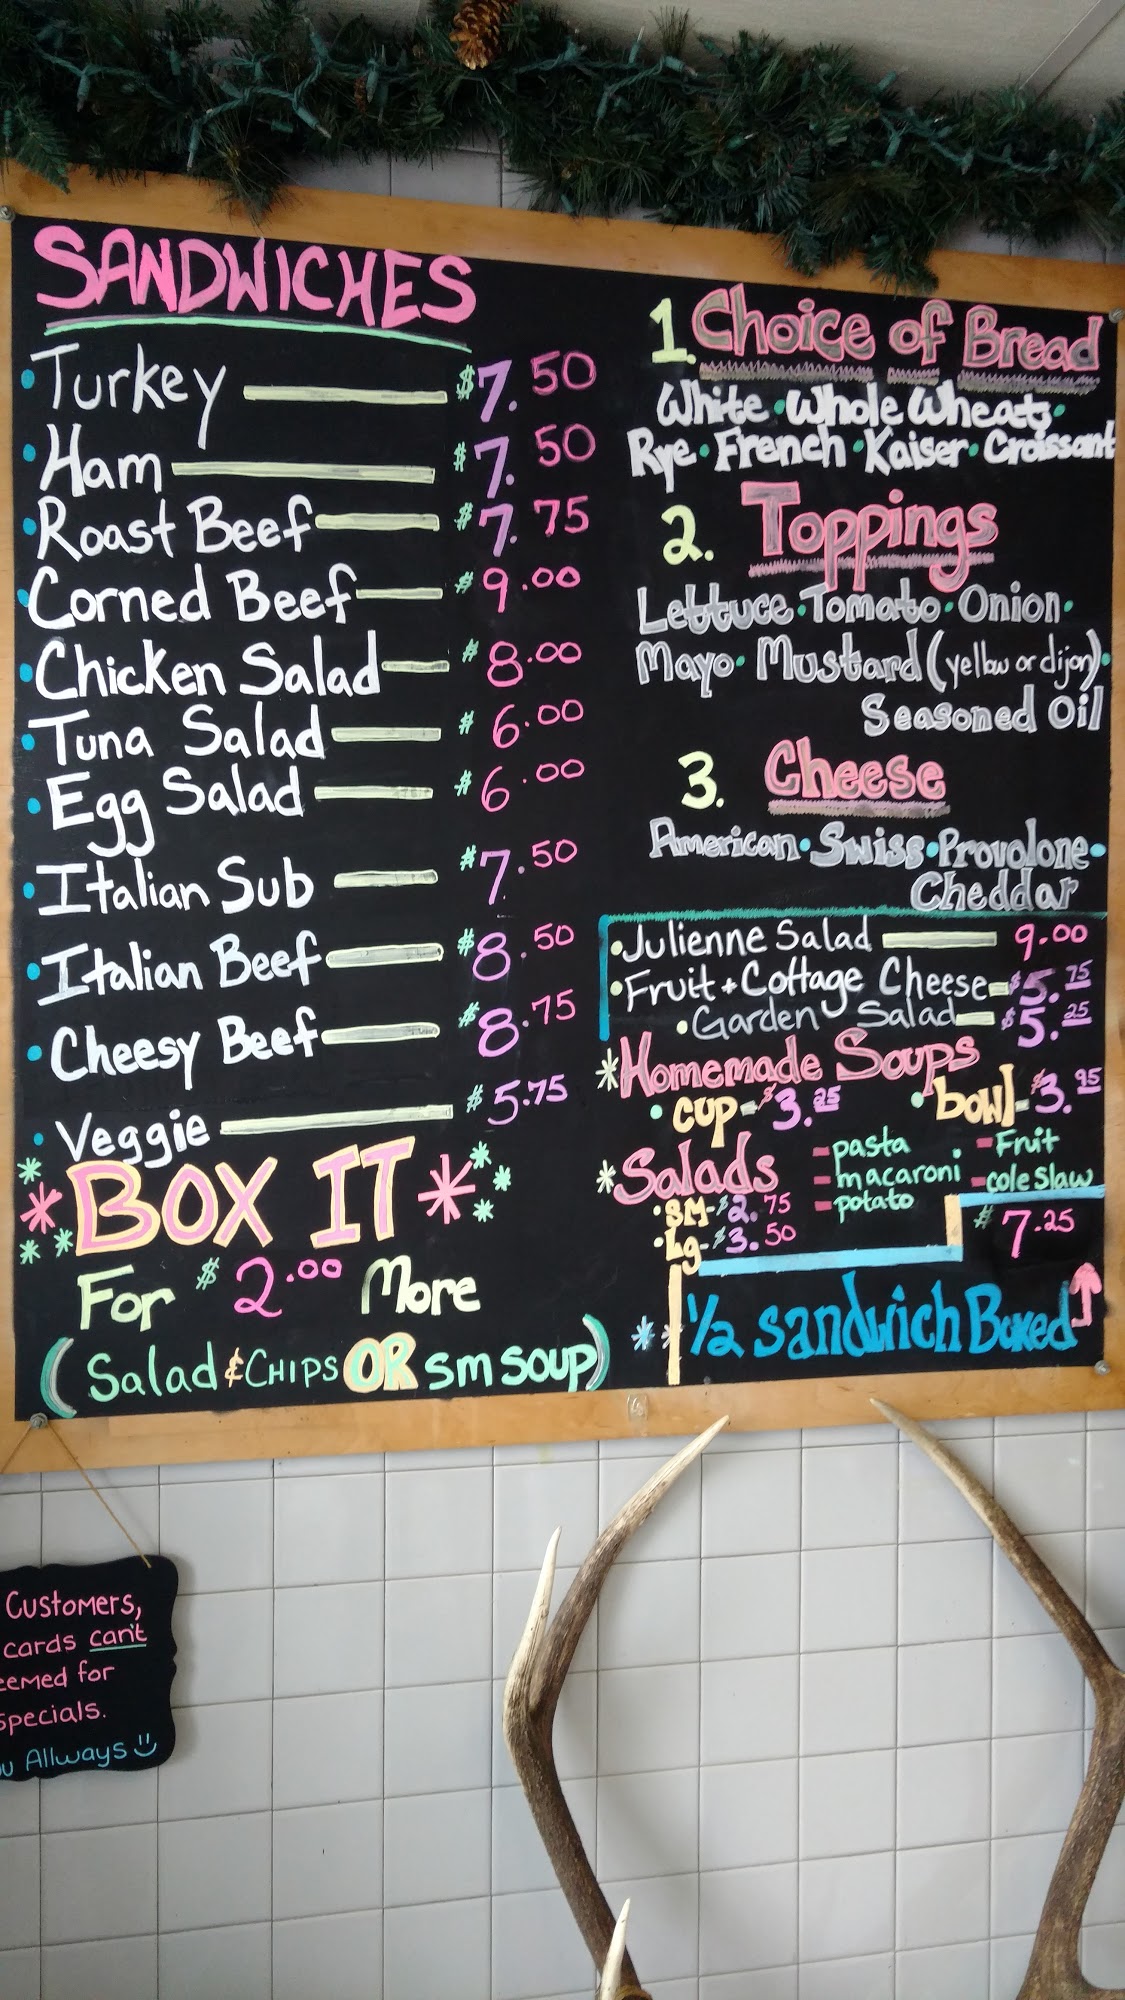 SANDWICHES
• Turkey $7.50
• Ham $7.50
• Roast Beef $7.75
• Corned Beef $9.00
• Chicken Salad $8.00
• Tuna Salad $6.00
• Egg Salad $6.00
• Italian Sub $7.50
• Italian Beef $8.50
• Cheesy Beef $8.75
• Veggie $5.75
* BOX IT *
For $2.00 More
(Salad & CHIPS OR sm soup)
1. Choice of Bread
White • Whole Wheat •
Rye • French • Kaiser • Croissant
2. Toppings
Lettuce • Tomato • Onion •
Mayo • Mustard (yellow or dijon) •
Seasoned Oil
3. Cheese
American • Swiss • Provolone •
Cheddar
• Julienne Salad 9.00
• Fruit + Cottage Cheese $5.75
• Garden Salad $5.25
* Homemade Soups
• cup - $3.25 • bowl - $3.95
* Salads - pasta - Fruit
- macaroni - cole slaw
• SM - $2.75 - potato
• Lg - $3.50
$7.25
** 1/2 sandwich Boxed
Customers,
cards can't
eemed for
specials.
u Allways